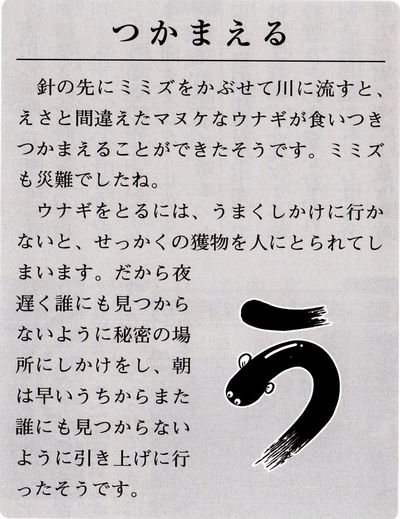 つかまえる
針の先にミミズをかぶせて川に流すと、
えさと間違えたマヌケなウナギが食いつき
つかまえることができたそうです。ミミズ
も災難でしたね。
ウナギをとるには、うまくしかけに行か
ないと、せっかくの獲物を人にとられてし
まいます。だから夜
遅く誰にも見つから
ないように秘密の場
所にしかけをし、朝
は早いうちからまた
誰にも見つからない
ように引き上げに行
ったそうです。
う